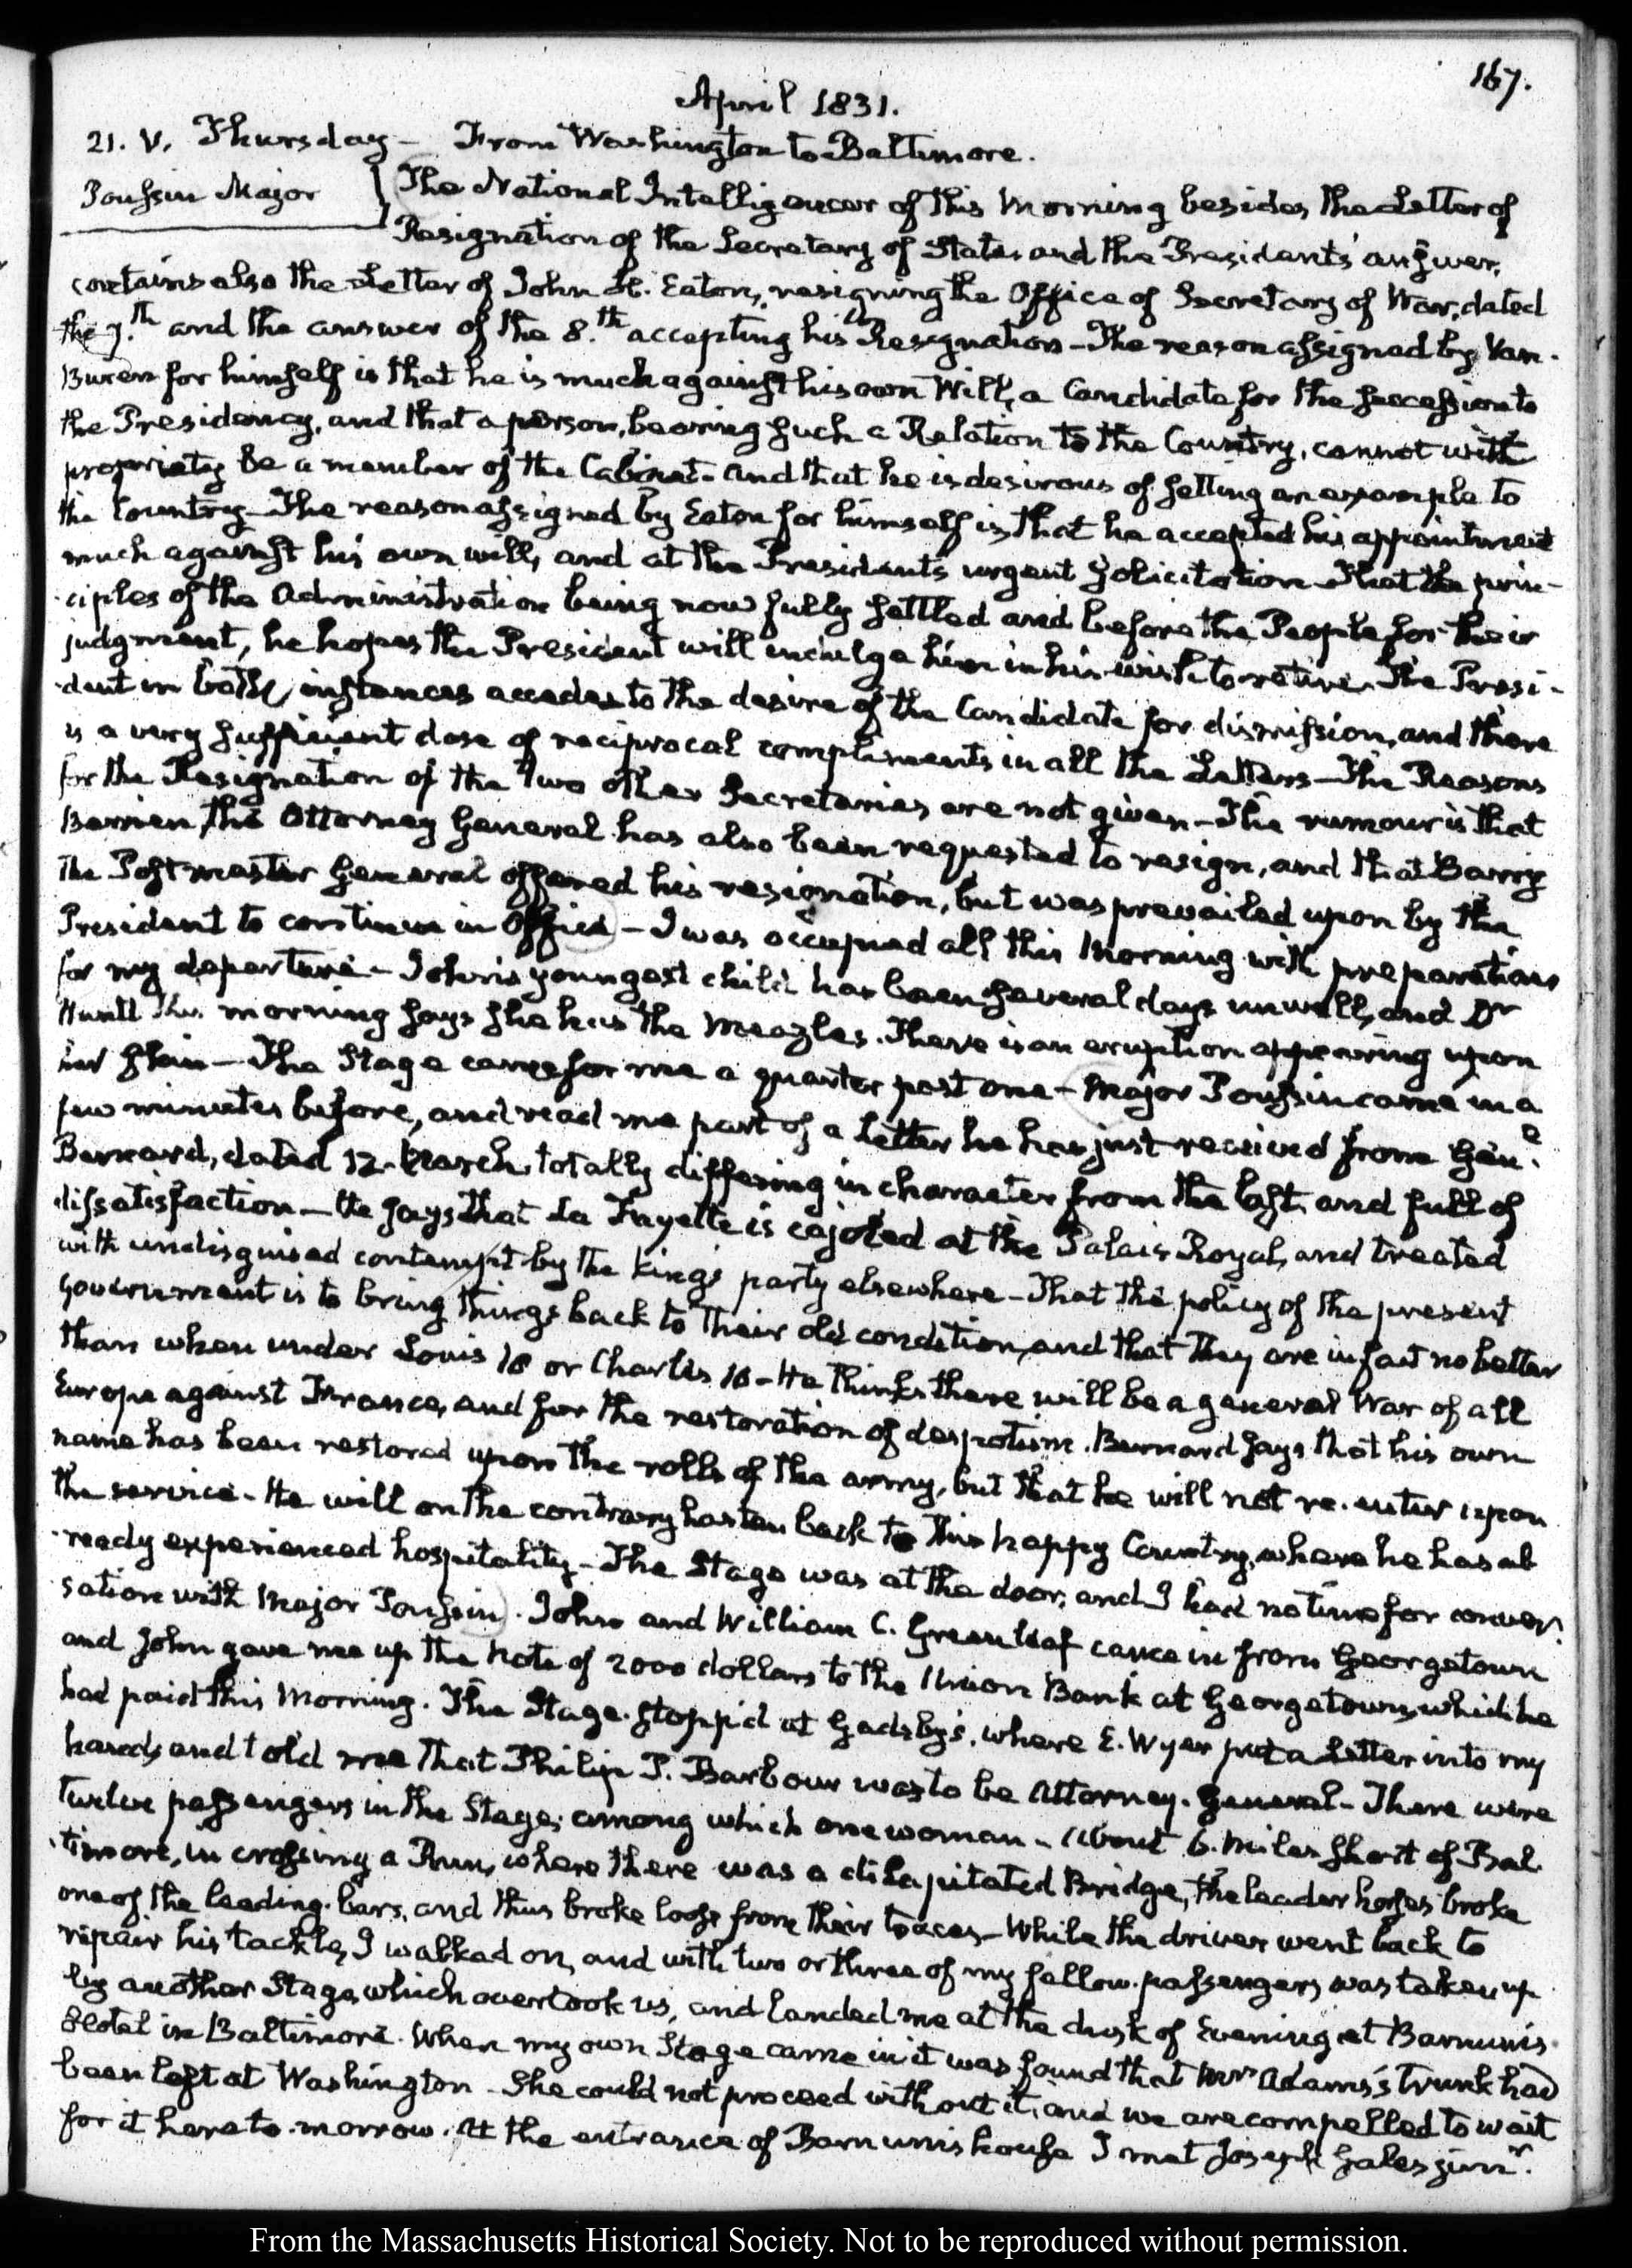 167.
April 1831.
21. V. Thursday — From Washington to Baltimore.
Poussin Major } The National Intelligencer of this Morning besides the Letter of
Resignation of the Secretary of State, and the President's answer,
contains also the Letter of John H. Eaton, resigning the Office of Secretary of War, dated
the 7.th and the answer of the 8.th accepting his Resignation — The reason assigned by Van-
Buren for himself is that he is much against his own Will, a Candidate for the succession to
the Presidency, and that a person, bearing such a Relation to the Country, cannot with
propriety be a member of the Cabinet - and that he is desirous of setting an example to
the Country — The reason assigned by Eaton for himself is, that he accepted his appointment
much against his own will, and at the Presidents urgent solicitation — That the prin-
ciples of the Administration being now fully settled and before the People for their
judgment, he hopes the President will indulge him in his wish to retire. The Presi-
dent in both instances accedes to the desire of the Candidate for dismission, and there
is a very sufficient dose of reciprocal compliments in all the Letters — The Reasons
for the Resignation of the two other Secretaries are not given — The rumour is that
Berrien, the Attorney General has also been requested to resign, and that Barry
the Postmaster General offered his resignation, but was prevailed upon by the
President to continue in Office — I was occupied all this Morning with preparations
for my departure — John's youngest child has been several days unwell, and Dr
Huntt this morning says she has the Meazles. There is an eruption appearing upon
her skin — The Stage came for me a quarter past one — Major Poussin came in a
few minutes before, and read me part of a Letter he has just received from Gen.l
Bernard, dated 12. March, totally differing in character from the last, and full of
dissatisfaction — He says that La Fayette is cajoled at the Palais Royal, and treated
with undisguised contempt by the king's party elsewhere — That the policy of the present
Government is to bring things back to their old condition, and that they are in fact no better
than when under Louis 18 or Charles 10 — He thinks there will be a general War of all
Europe against France, and for the restoration of despotism. Bernard says that his own
name has been restored upon the rolls of the army, but that he will not re-enter upon
the service — He will on the contrary hasten back to this happy Country, where he has al
ready experienced hospitality — The Stage was at the door, and I had no time for conver-
sation with Major Poussin. John and William C. Greenleaf came in from Georgetown
and John gave me up the Note of 2000 dollars to the Union Bank at Georgetown, which he
had paid this Morning. The Stage stopp'd at Gadsby's, where E. Wyer put a Letter into my
hands, and told me that Philip P. Barbour was to be Attorney-General — There were
twelve passengers in the Stage; among which one woman — About 6. Miles short of Bal
timore, in crossing a Run, where there was a dilapitated Bridge, the leader horses broke
one of the leading-bars, and thus broke loose from their traces — While the driver went back to
repair his tackle, I walked on, and with two or three of my fellow-passengers was taken up
by another Stage which overtook us, and landed me at the dusk of Evening at Barnum's
Hotel in Baltimore. When my own Stage came in it was found that Mrs Adams's trunk had
been left at Washington — She could not proceed without it, and we are compelled to wait
for it here to-morrow. At the entrance of Barnum's house I met Joseph Gales junr.
From the Massachusetts Historical Society. Not to be reproduced without permission.